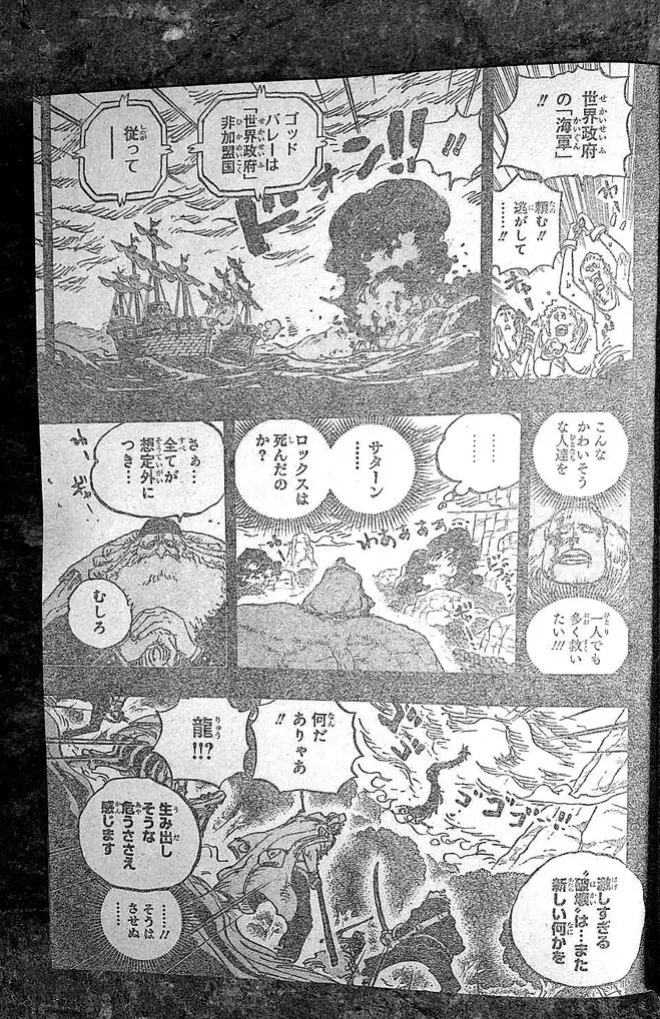 世界政府
の「海軍」
!!
頼む!!
逃がして
……!!
ドオン!!
ゴッド
バレーは
「世界政府」
非加盟国
従って
こんな
かわいそう
な人達を
一人でも
多く救い
たい!!
……
サターン
……
ロックスは
死んだの
か?
わああああ
さァ…
全てが
想定外に
つき…
むしろ
激しすぎる
"破壊"は…また
新しい何かを
ゴゴゴゴ!!
何だ
ありゃあ
!!
龍!!?
生み出し
そうな
危うささえ
感じます
……!!
そうは
させぬ